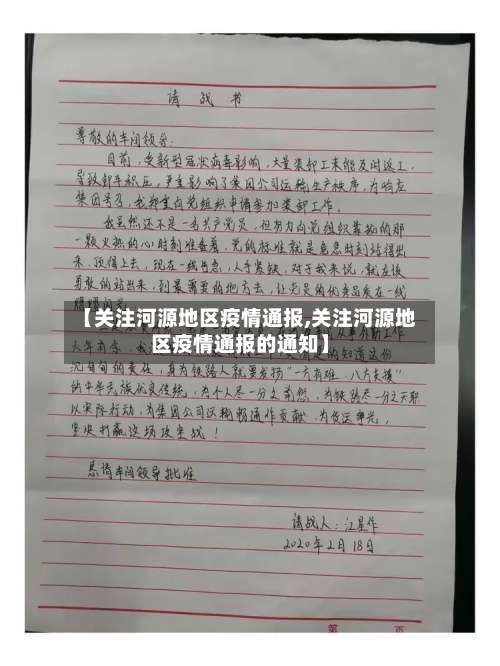 请战书
尊敬的车间领导:
目前,受新型冠状病毒影响,大量装卸工未能及时返工,
导致卸车积压,严重影响了集团公司运输生产秩序,为响应
集团号召,我郑重向党组织申请参加装卸工作。
我虽然还不是一名共产党员,但努力向党组织靠拢的那
一颗火热的心时刻准备着,党的标准就是危急时刻站得出
来、顶得上去,现在一线告急,人手紧缺,对于我来说,就应该
勇敢的站出来,到最需要的地方去,让党员的优秀品质在一线
【关注河源地区疫情通报,关注河源地
区疫情通报的通知】
沉甸甸的责任,身为铁路人就要发扬“一方有难、八方支援”
的中华民族优良传统,为个人尽一分之氵,为铁路尽一分之天职
以实际行动,为集团公司运输畅通作贡献,为货运争光,
坚决打赢这场攻坚战!
恳请车间领导批准
请战人:江星作
2020年2月18日
第 页